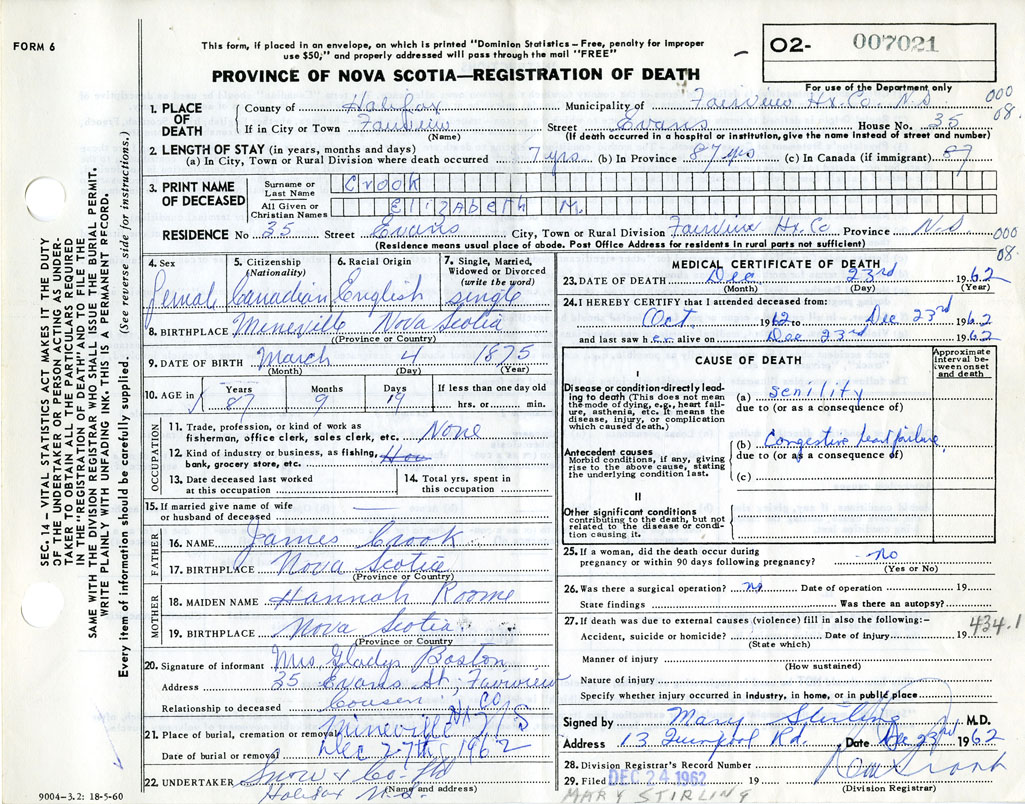 FORM 6
This form, if placed in an envelope, on which is printed "Dominion Statistics – Free, penalty for improper
use $50;" and properly addressed will pass through the mail "FREE"
O2- 007021
PROVINCE OF NOVA SCOTIA—REGISTRATION OF DEATH
For use of the Department only
SEC. 14 – VITAL STATISTICS ACT MAKES IT THE DUTY
OF THE UNDERTAKER OR PERSON ACTING AS UNDER-
TAKER TO OBTAIN ALL THE PARTICULARS REQUIRED
IN THE "REGISTRATION OF DEATH" AND TO FILE THE
SAME WITH THE DIVISION REGISTRAR WHO SHALL ISSUE THE BURIAL PERMIT.
WRITE PLAINLY WITH UNFADING INK. THIS IS A PERMANENT RECORD.
Every item of information should be carefully supplied. (See reverse side for instructions.)
1. PLACE OF DEATH
County of Halifax Municipality of Fairview Hx. Co. N.S 000
08.
If in City or Town Fairview Street Evans House No. 35
(Name) (If death occurred in a hospital or institution, give the name instead of street and number)
2. LENGTH OF STAY (in years, months and days)
(a) In City, Town or Rural Division where death occurred 7 yrs (b) In Province 87 yrs (c) In Canada (if immigrant) 87
3. PRINT NAME OF DECEASED
Surname or Last Name Crook
All Given or Christian Names Elizabeth M.
RESIDENCE No 35 Street Evans City, Town or Rural Division Fairview Hx. Co Province N.S 000
08.
(Residence means usual place of abode. Post Office Address for residents in rural parts not sufficient)
4. Sex 5. Citizenship (Nationality) 6. Racial Origin 7. Single, Married, Widowed or Divorced (write the word)
Femal Canadian English single
8. BIRTHPLACE Mineville Nova Scotia
(Province or Country)
9. DATE OF BIRTH March 4 1875
(Month) (Day) (Year)
10. AGE in Years Months Days If less than one day old
87 9 19 hrs. or min.
OCCUPATION
11. Trade, profession, or kind of work as
fisherman, office clerk, sales clerk, etc. None
12. Kind of industry or business, as fishing,
bank, grocery store, etc.
13. Date deceased last worked
at this occupation
14. Total yrs. spent in
this occupation
15. If married give name of wife
or husband of deceased —
FATHER
16. NAME James Crook
17. BIRTHPLACE Nova Scotia
(Province or Country)
MOTHER
18. MAIDEN NAME Hannah Roome
19. BIRTHPLACE Nova Scotia
(Province or Country
20. Signature of informant Mrs Gladys Boston
Address 35 Evans St, Fairview
Relationship to deceased Cousin
21. Place of burial, cremation or removal Mineville Hx Co N S
Date of burial or removal Dec 27th 1962
22. UNDERTAKER Snow & Co. Ltd
(Name and address)
Halifax N.S.
9004–3.2: 18-5-60
MEDICAL CERTIFICATE OF DEATH
23. DATE OF DEATH Dec 23rd 1962
(Month) (Day) (Year)
24. I HEREBY CERTIFY that I attended deceased from:
Oct 1962 to Dec 23rd 1962
and last saw her alive on Dec 23rd 1962
CAUSE OF DEATH
Approximate
Interval be-
tween onset
and death
I
Disease or condition directly lead-
ing to death (This does not mean
the mode of dying, e.g., heart fail-
ure, asthenia, etc. It means the
disease, injury, or complication
which caused death.)
(a) Senility
due to (or as a consequence of)
Antecedent causes
Morbid conditions, if any, giving
rise to the above cause, stating
the underlying condition last.
(b) Congestive heart failure
due to (or as a consequence of)
(c)
II
Other significant conditions
contributing to the death, but not
related to the disease or condi-
tion causing it.
25. If a woman, did the death occur during
pregnancy or within 90 days following pregnancy? no
(Yes or No)
26. Was there a surgical operation? no Date of operation 19
State findings Was there an autopsy?
27. If death was due to external causes (violence) fill in also the following:-
Accident, suicide or homicide? Date of injury 19 434.1
(State which)
Manner of injury
(How sustained)
Nature of injury
Specify whether injury occurred in industry, in home, or in public place
Signed by Mary Stirling M.D.
Address 13 Quinpool Rd. Date Dec 23rd 1962
28. Division Registrar's Record Number
29. Filed DEC 24 1962 19
(Division Registrar)
MARY STIRLING